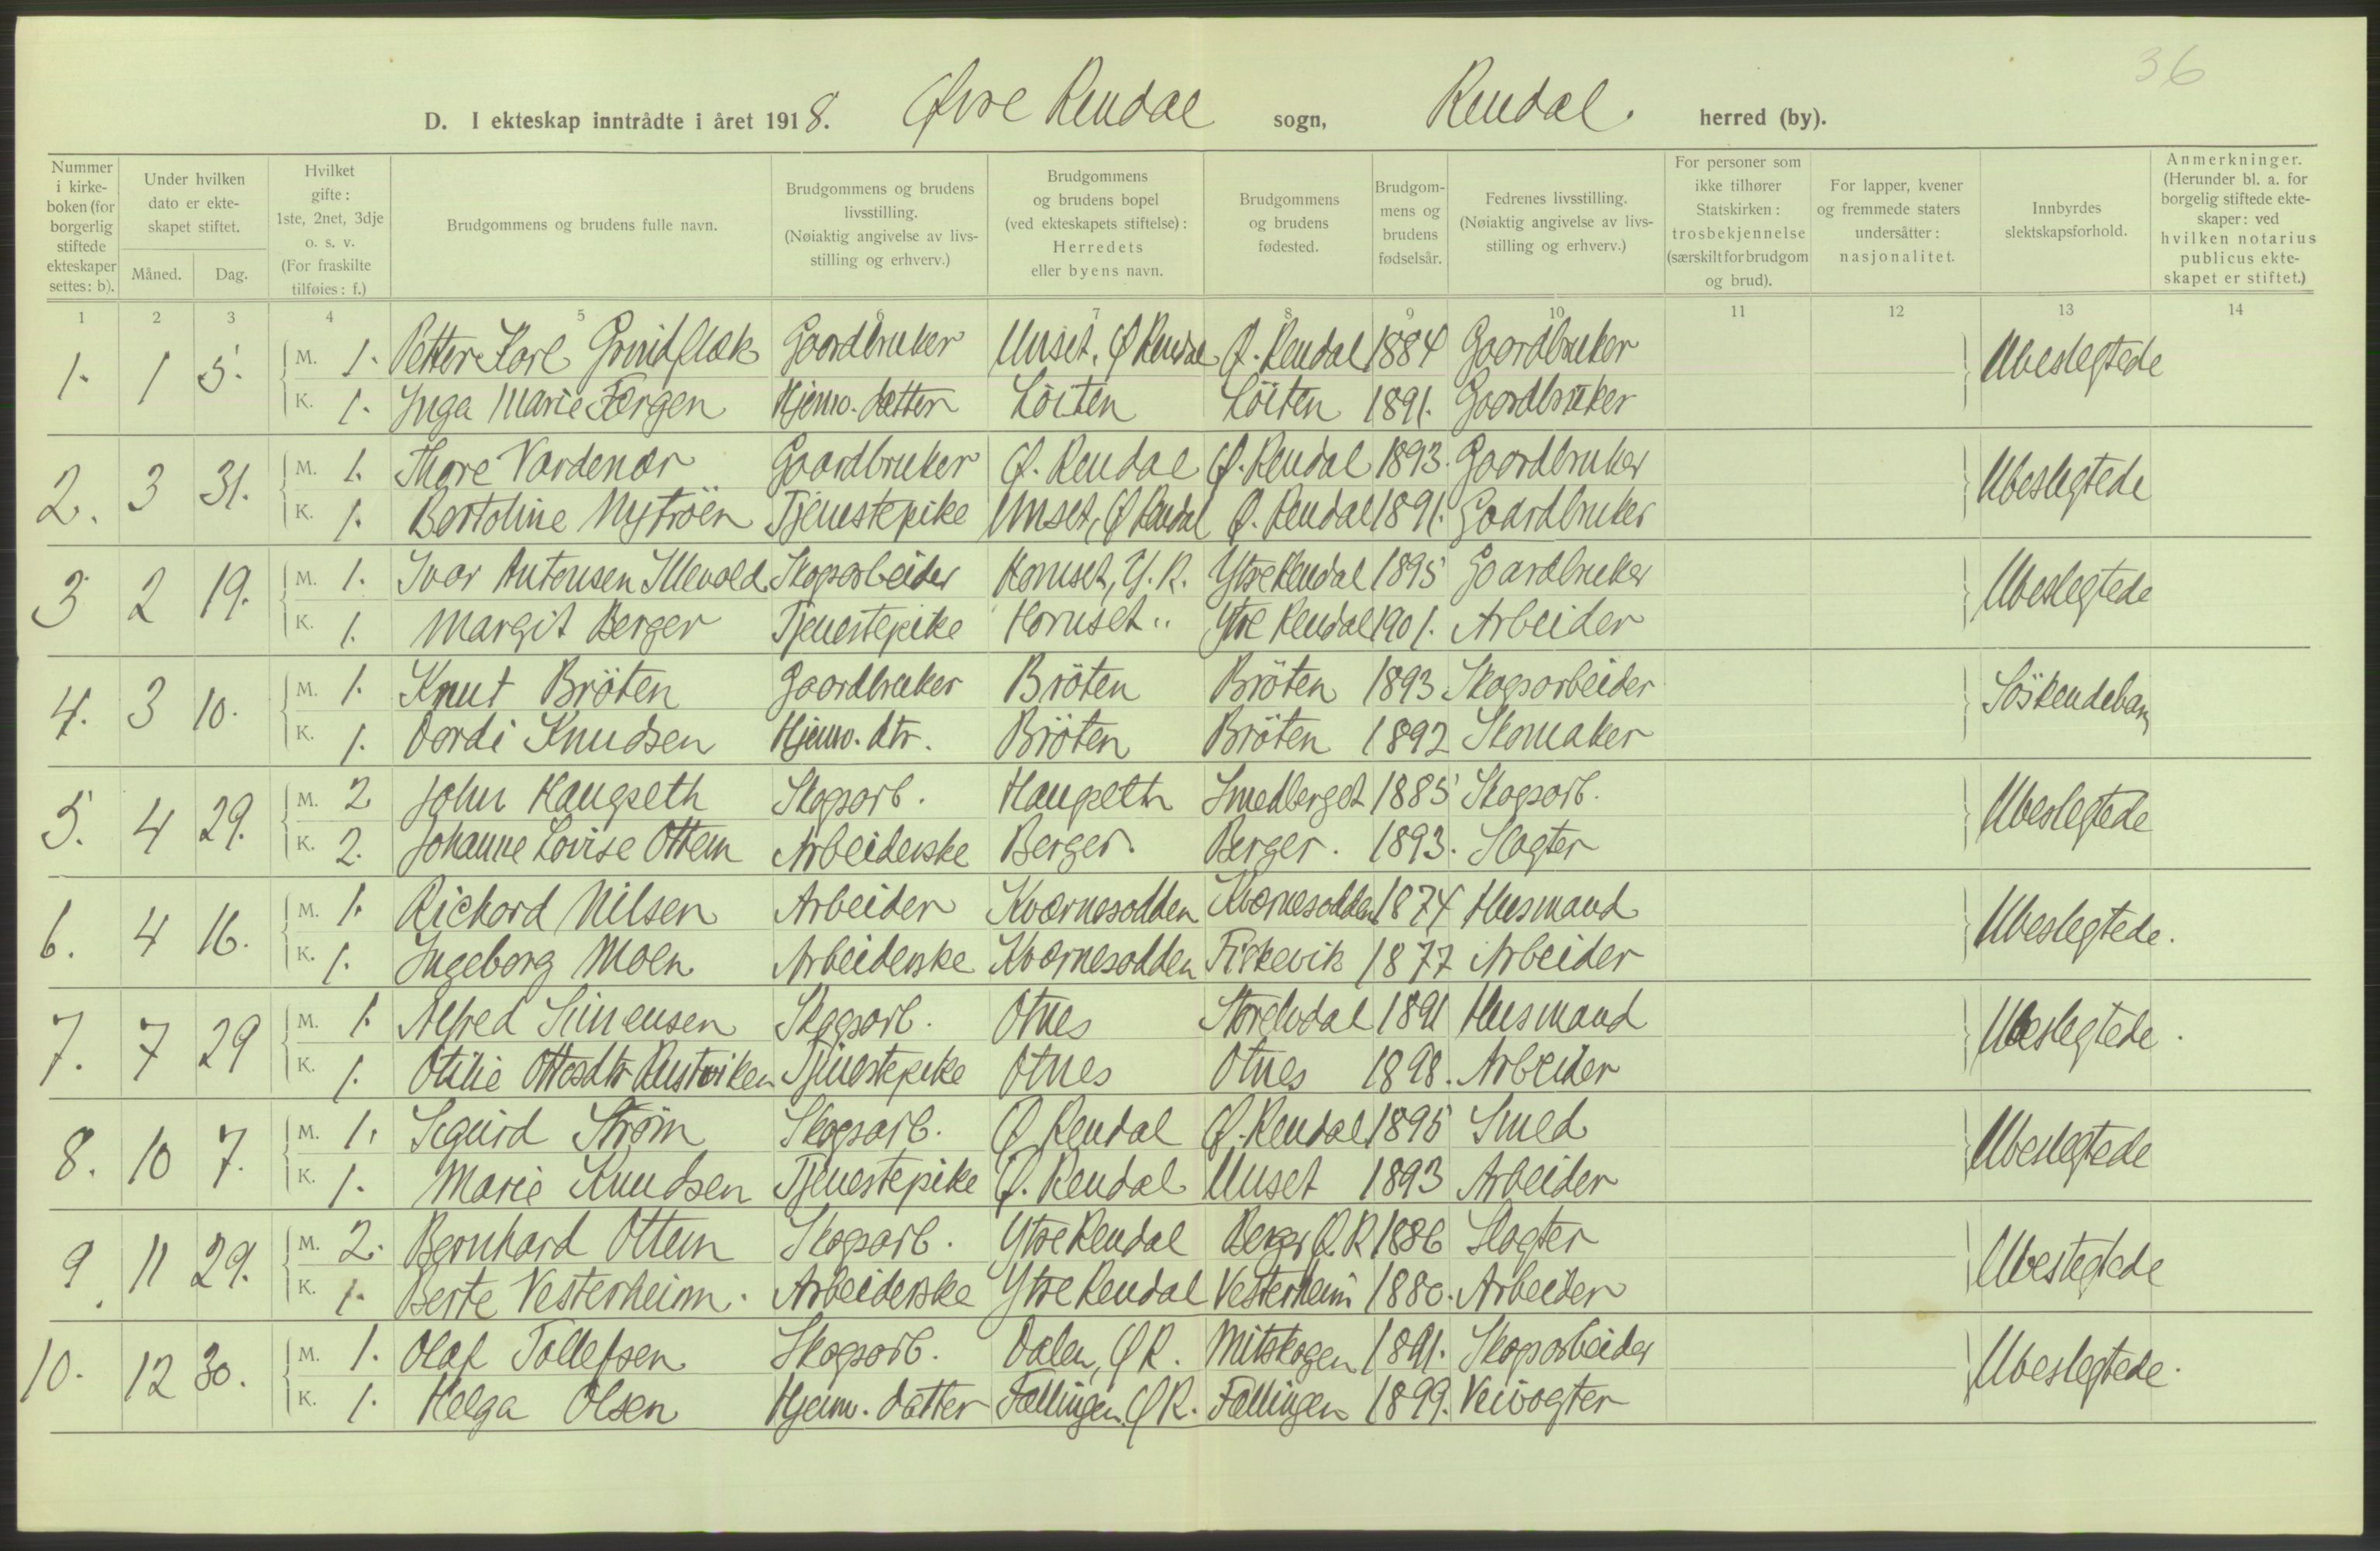 36
D. I ekteskap inntrådte i året 1918. Øvre Rendal sogn, Rendal. herred (by).
Nummer i kirkeboken (for borgerlig stiftede ekteskaper settes: b).
Under hvilken dato er ekteskapet stiftet. Måned. Dag.
Hvilket gifte: 1ste, 2net, 3dje o. s. v. (For fraskilte tilføies: f.)
Brudgommens og brudens fulle navn.
Brudgommens og brudens livsstilling. (Nøiaktig angivelse av livsstilling og erhverv.)
Brudgommens og brudens bopel (ved ekteskapets stiftelse): Herredets eller byens navn.
Brudgommens og brudens fødested.
Brudgommens og brudens fødselsår.
Fedrenes livsstilling. (Nøiaktig angivelse av livsstilling og erhverv.)
For personer som ikke tilhører Statskirken: trosbekjennelse (særskilt for brudgom og brud).
For lapper, kvener og fremmede staters undersåtter: nasjonalitet.
Innbyrdes slektskapsforhold.
Anmerkninger. (Herunder bl. a. for borgelig stiftede ekteskaper: ved hvilken notarius publicus ekteskapet er stiftet.)
1 2 3 4 5 6 7 8 9 10 11 12 13 14
1. 1 5. M. 1. Petter Karl Grindflæk Gaardbruker Unset, Ø Rendal Ø. Rendal 1884 Gaardbruker Ubeslegtede
K. 1. Inga Marie Færgen Hjemv. datter Löiten Löiten 1891. Gaardbruker
2. 3 31. M. 1. Thore Vardenær Gaardbruker Ø. Rendal Ø. Rendal 1893. Gaardbruker Ubeslegtede
K. 1. Bertoline Nytröen Tjenestepike Unset, Ø Rendal Ø. Rendal 1891. Gaardbruker
3 2 19. M. 1. Ivar Antonsen Illevold Skogsarbeider Hornset, Y. R. Ytre Rendal 1895 Gaardbruker Ubeslegtede
K. 1. Margit Berger Tjenestepike Hornset " Ytre Rendal 1901. Arbeider
4. 3 10. M. 1. Knut Bröten Gaardbruker Bröten Bröten 1893 Skogsarbeider Söskendebarn
K. 1. Dordi Knudsen Hjemv. dtr. Bröten Bröten 1892 Skomaker
5. 4 29. M. 2 John Haugseth Skogsarb. Haugseth Smedberget 1885 Skogsarb. Ubeslegtede
K. 2. Johanne Lovise Ottem Arbeiderske Berger. Berger. 1893. Slagter
6. 4 16. M. 1. Richard Nilsen Arbeider Kværnesodden Kværnesodden 1874 Husmand Ubeslegtede.
K. 1. Ingeborg Moen Arbeiderske Kværnesodden Fiskevik 1877 Arbeider
7. 7 29 M. 1. Alfred Simensen Skogsarb. Otnes Storelvdal 1891 Husmand Ubeslegtede.
K. 1. Otilie Ottosdtr Rustviken Tjenestepike Otnes Otnes 1898. Arbeider
8. 10 7. M. 1. Sigurd Ström Skogsarb. Ø Rendal Ø. Rendal 1895 Smed Ubeslegtede
K. 1. Marie Knudsen Tjenestepike Ø. Rendal Unset 1893 Arbeider
9. 11 29. M. 2. Bernhard Ottem Skogsarb. Ytre Rendal Berger Ø. R 1886 Slagter Ubeslegtede
K. 1. Berte Vesterheim. Arbeiderske Ytre Rendal Vesterheim 1880. Arbeider
10. 12 30. M. 1. Olaf Tollefsen Skogsarb. Dalen, Ø R. Mitskogen 1891. Skogsarbeider Ubeslegtede.
K. 1. Helga Olsen Hjem. datter Fællingen, Ø R. Fællingen 1899. Veivogter